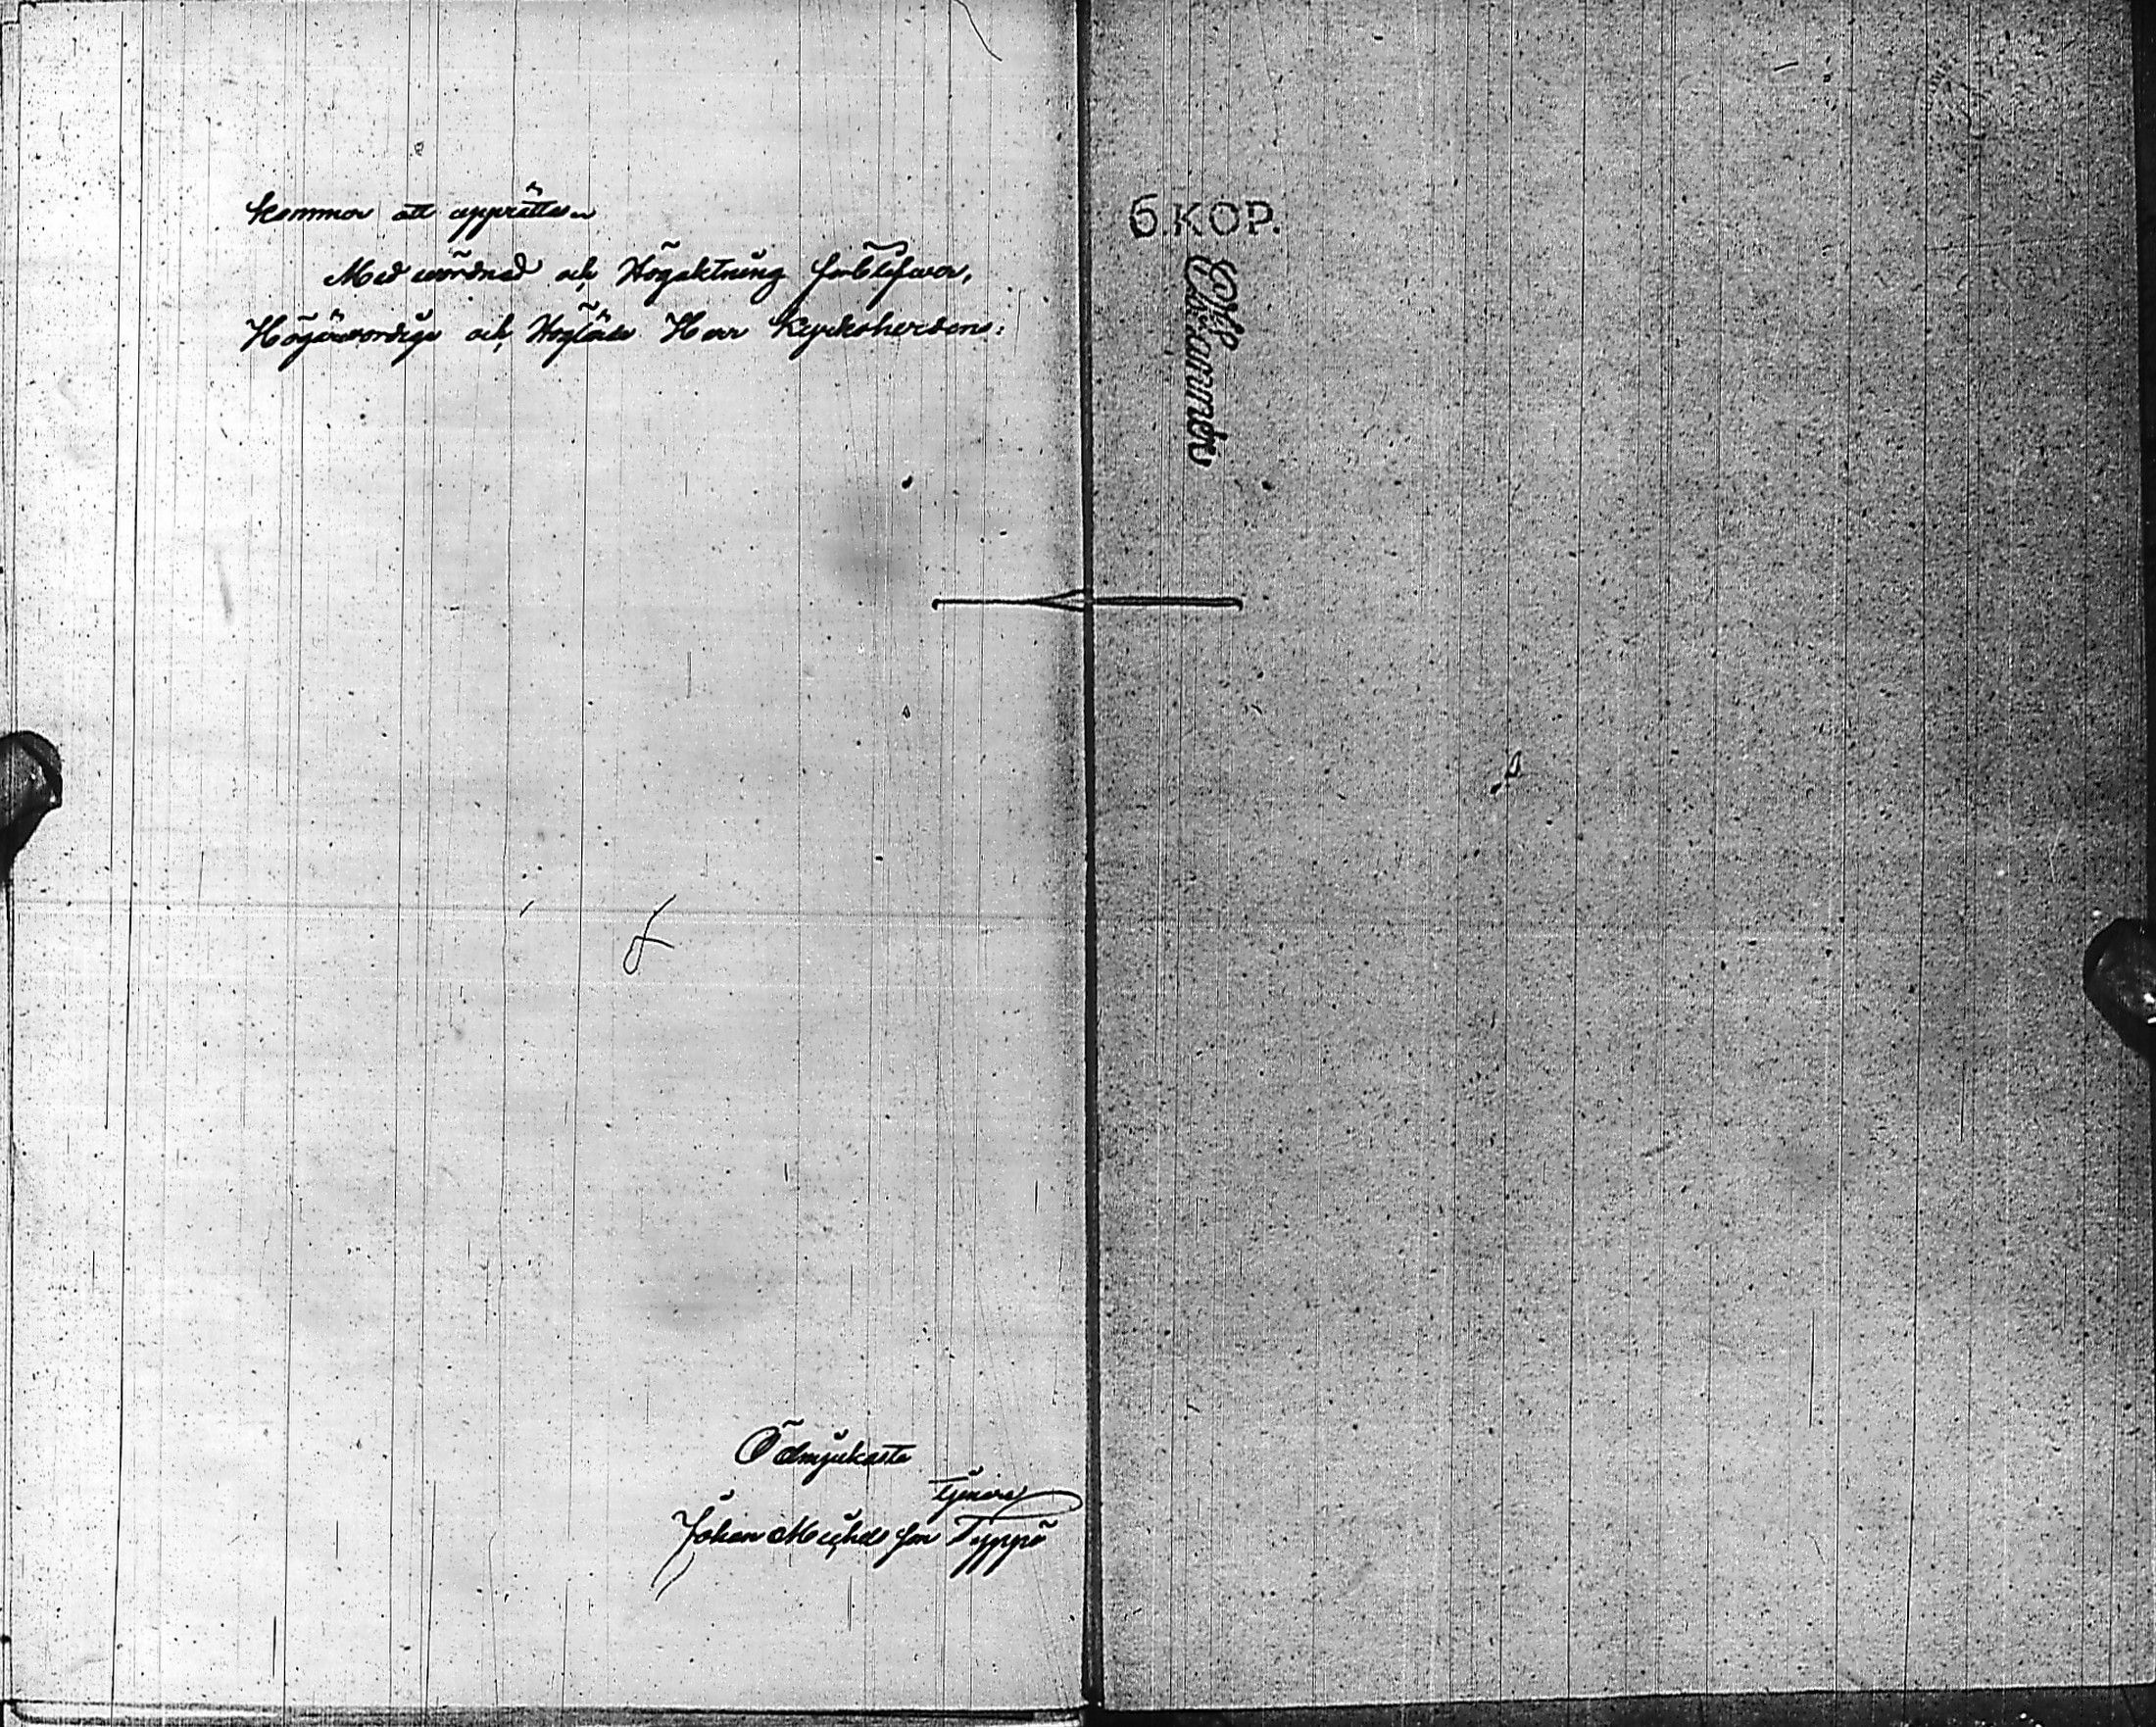 kommer att upprätta.
Med wördnad och Högaktning förblifwer,
Högärewördige och Höglärde Herr Kyrkoherdens:
Ödmjukaste
tjenare
Johan Michels son Typpö
6 KOP.
Charta